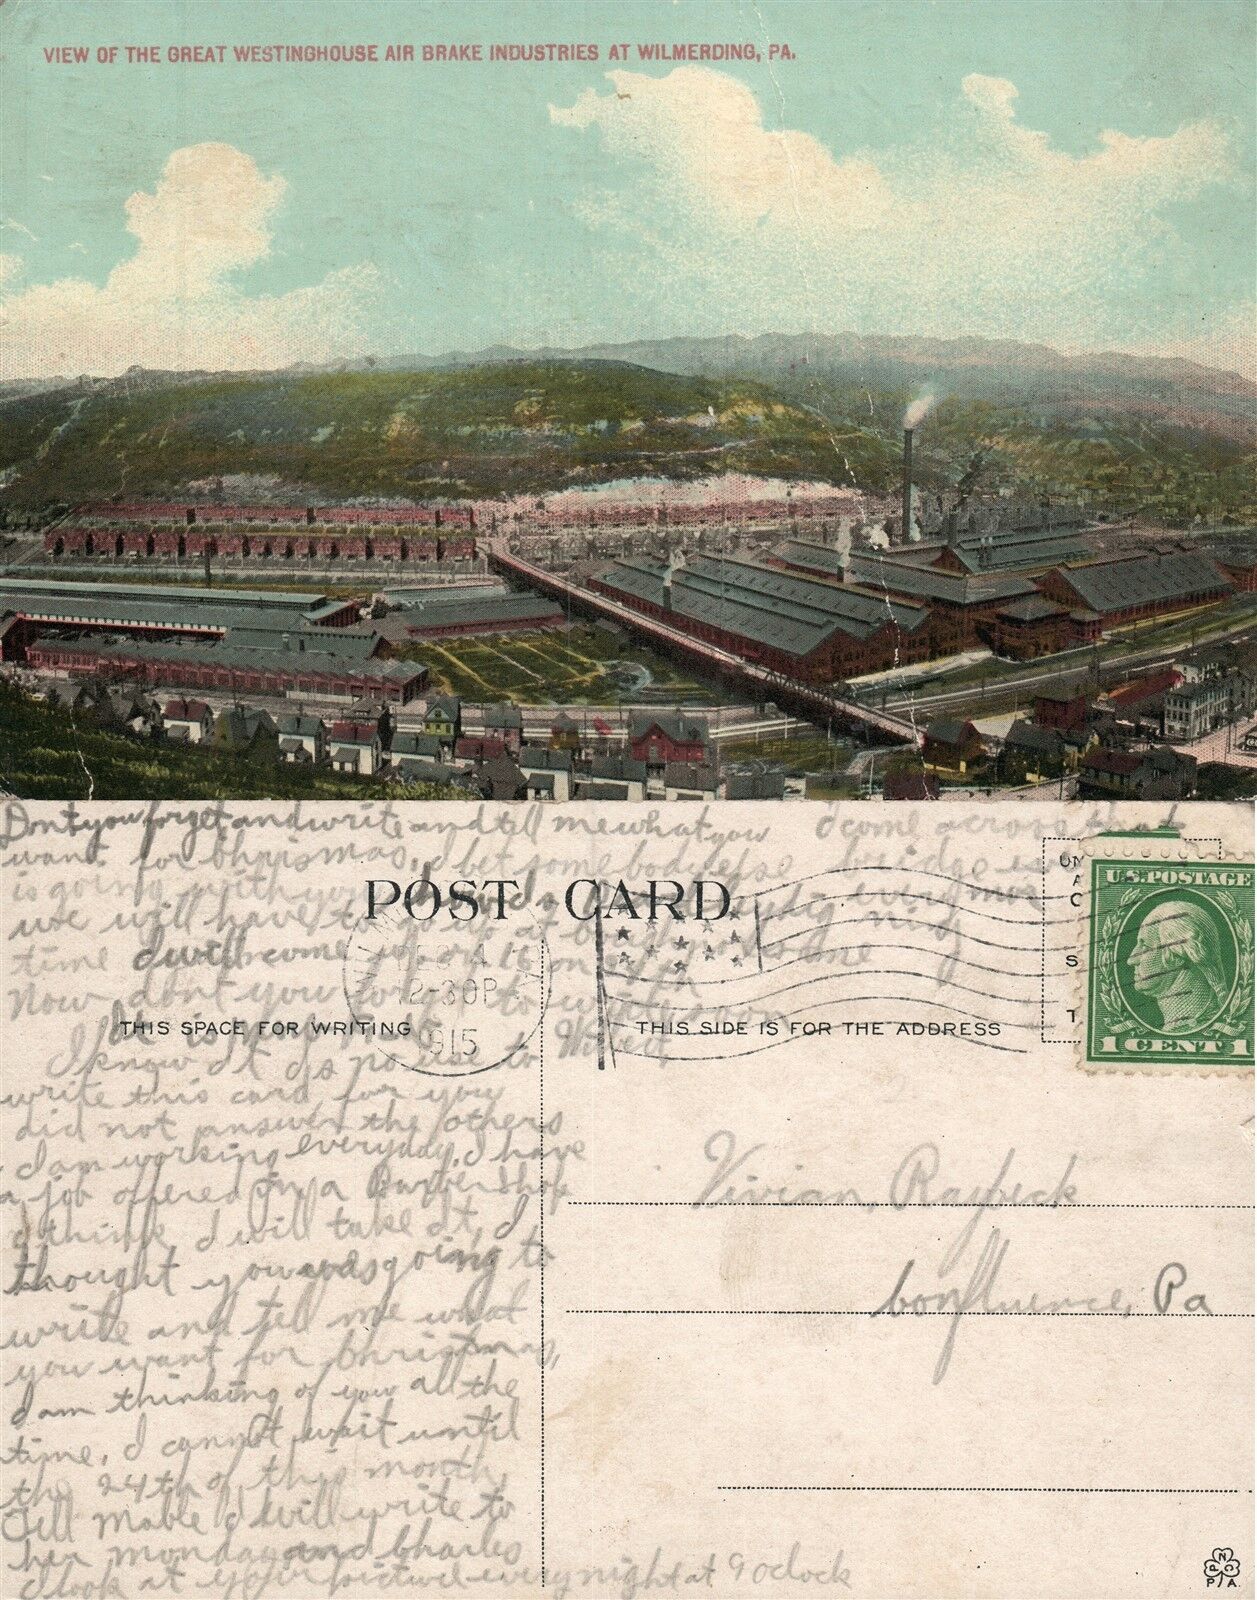 VIEW OF THE GREAT WESTINGHOUSE AIR BRAKE INDUSTRIES AT WILMERDING, PA.
Dont you forget and write and tell me what you
want for Christmas, I bet somebody else
is going with you
we will have to go up at
time I will come up or
Now dont you forget to write soon
I come across that
bridge
every
POST CARD
DEC 4
12-30P
1915
THIS SPACE FOR WRITING
THIS SIDE IS FOR THE ADDRESS
U.S. POSTAGE
1 CENT 1
I know It Is no use to
write this card for you
did not answer the others
I am working everyday, I have
a job offered in a Barber Shop
I think I will take It, I
thought you was going to
write and tell me what
you want for Christmas,
I am thinking of you all the
time, I cannot wait until
the 24th of this month
Tell Mable I will write to
her monday and Charles
I look at your picture every night at 9 oclock
Vivian, Raybeck
Confluence, Pa
N
P A